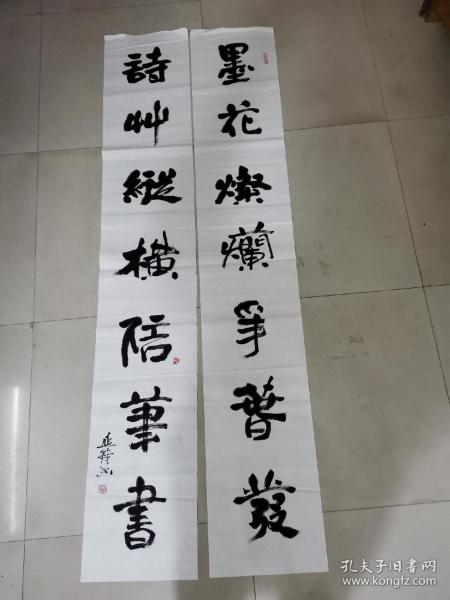 墨花燦爛爭春發
詩艸縱橫信筆書
孔夫子旧书网
www.kongfz.com